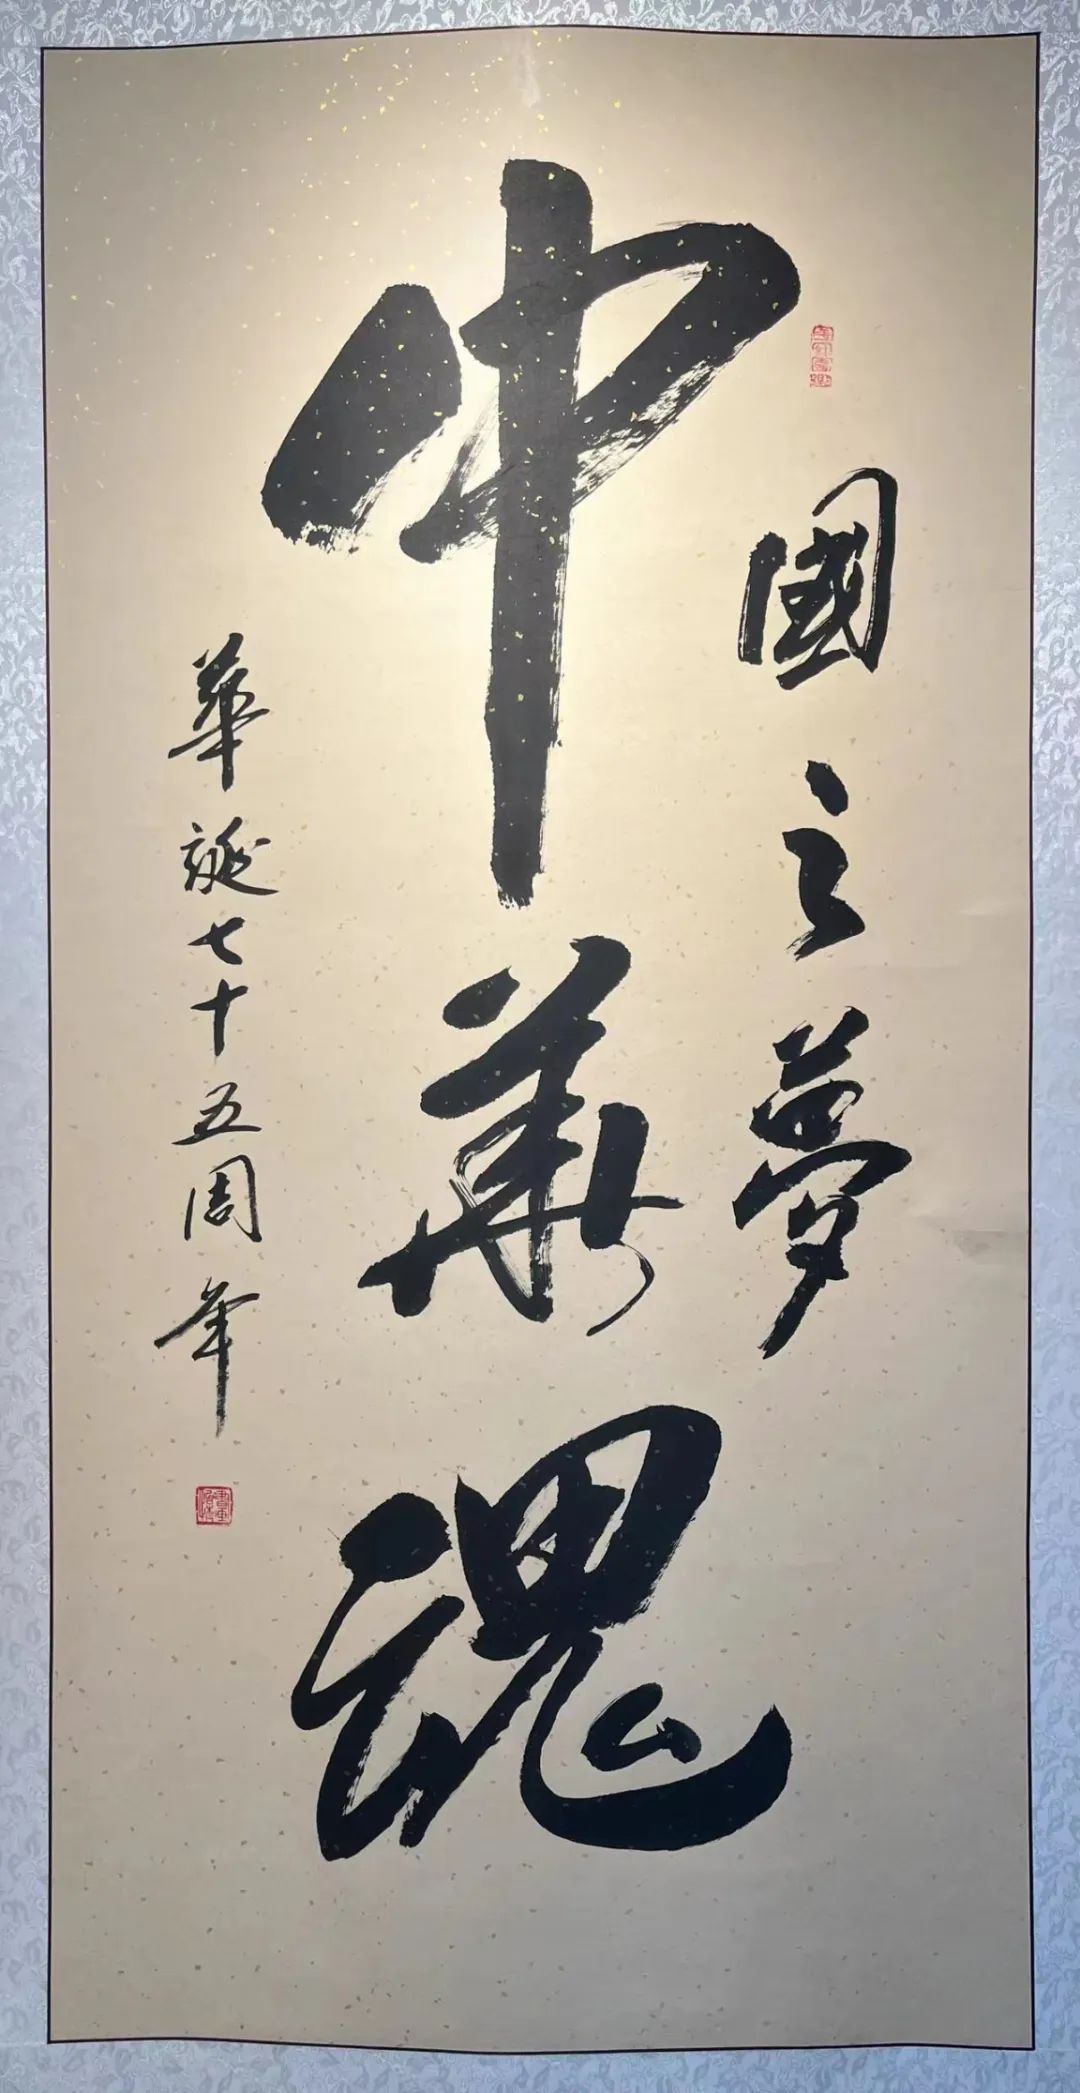 國之夢
中華魂
華誕七十五周年